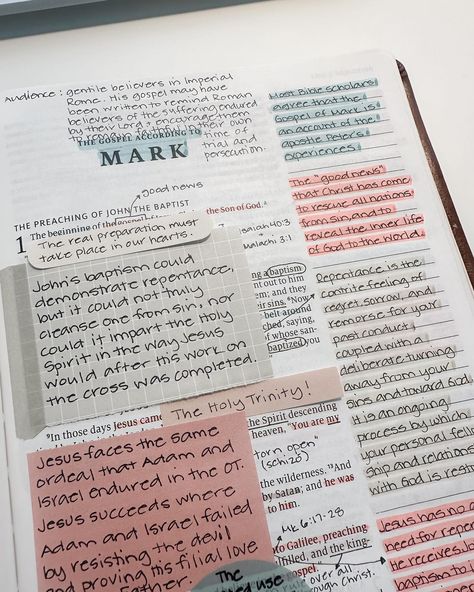 Audience: gentile believers in Imperial
Rome. His gospel may have
been written to remind Roman
believers of the suffering endured
by their Lord & encourage them
time of
trial and
persecution.
THE GOSPEL ACCORDING
MARK
good news
THE PREACHING OF JOHN THE BAPTIST
1 The beginning of the gospel
the Son of God.
The real preparation must
take place in our hearts.
Isaiah 40:3
Malachi 3:1
John's baptism could
demonstrate repentance,
but it could not truly
cleanse one from sin, nor
could it impart the Holy
Spirit in the way Jesus
would after his work on
the cross was completed.
a baptism
ent out to him
n; and they
eir sins. "Now
belt around
ched, saying,
of whose san-
baptized you
The Holy Trinity!
"In those days Jesus came
the Spirit descending
heaven, "You are my
"torn open"
(schizo)
the wilderness. 13And
by Satan; and he was
to him.
Mk 6:17-28
to Galilee, preaching
and the king-
gospel."
rule over all
through Christ.
Jesus faces the same
ordeal that Adam and
Israel endured in the OT.
Jesus succeeds where
Adam and Israel failed
by resisting the devil
and proving his filial love
Father.
The
used
Most Bible scholars
agree that the
Gospel of Mark is
an account of the
apostle Peter's
experiences.
The "good news"
that Christ has come
to rescue all nations
from sin, and to
reveal the inner life
of God to the world.
Repentance is the
contrite feeling of
regret, sorrow, and
remorse for your
past conduct,
coupled with a
deliberate turning
away from your
sics and toward God.
It is an ongoing
process by which
your personal fello
ship and relations
with God is rest
Jesus has no
need for repen
He receives
baptism to i